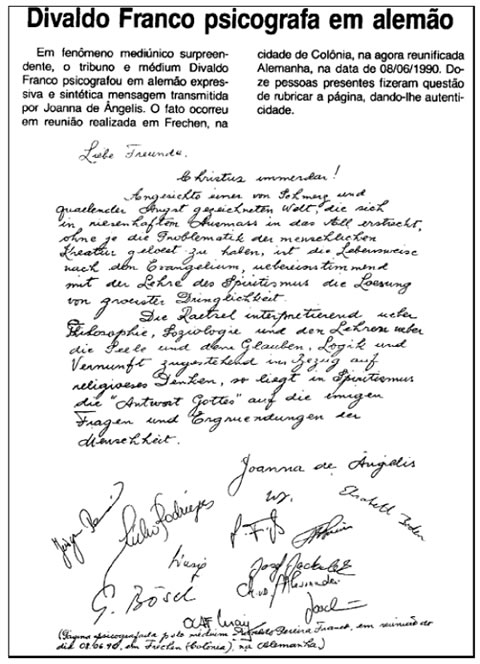 Divaldo Franco psicografa em alemão
Em fenômeno mediúnico surpreen-
dente, o tribuno e médium Divaldo
Franco psicografou em alemão expres-
siva e sintética mensagem transmitida
por Joanna de Ângelis. O fato ocorreu
em reunião realizada em Frechen, na
cidade de Colônia, na agora reunificada
Alemanha, na data de 08/06/1990. Do-
ze pessoas presentes fizeram questão
de rubricar a página, dando-lhe autenti-
cidade.
Liebe Freunde.
Christus immerdar!
Angesichts einer von Schmerz und
quaelender Angst gezeichneten Welt, die sich
in riesenhaften Ausmass in das All erstreckt,
ohne je die Problematik der menschlichen
Kreatur geloest zu haben, ist die Lebensweise
nach dem Evangelium, uebereinstimmend
mit der Lehre des Spiritismus die Loesung
von groesster Dringlichkeit.
Die Raetsel interpretierend ueber
Philosophie, Soziologie und den Lehren ueber
die Seele und dem Glauben, Logik und
Vernunft zugestehend in Bezug auf
religioeses Denken, so liegt in Spiritismus
die "Antwort Gottes" auf die
Fragen und Ergruendungen der
Menschheit.
Joanna de Ângelis
Elisabeth
Júlio Rodrigues
Josef
G. Bösch
OLAF
(Página psicografada pelo médium Divaldo Pereira Franco, em reunião do
dia 08.06.90, em Frechen (Colônia), na Alemanha.)